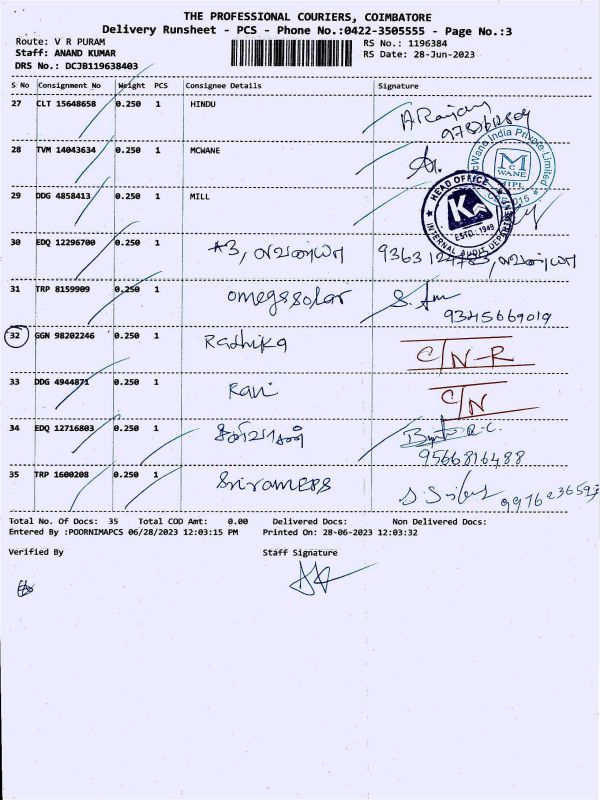 THE PROFESSIONAL COURIERS, COIMBATORE
Delivery Runsheet - PCS - Phone No.:0422-3505555 - Page No.:3
Route: V R PURAM RS No.: 1196384
Staff: ANAND KUMAR RS Date: 28-Jun-2023
DRS No.: DCJB119638403
S No Consignment No Weight PCS Consignee Details Signature
27 CLT 15648658 0.250 1 HINDU A Rajan
28 TVM 14043634 0.250 1 MCWANE
McWane India Private Limited
MCWANE
MIPL
29 DDG 4858413 0.250 1 MILL
HEAD OFFICE
K
ESTD. 1949
INTERNAL AUDIT DEPARTMENT
30 EDQ 12296700 0.250 1
31 TRP 8159909 0.250 1 omegssolar
9345669019
32 GGN 98202246 0.250 1 Radhika C/N-R
33 DDG 4944871 0.250 1 Ravi C/N
34 EDQ 12716803 0.250 1
9566816488
35 TRP 1600208 0.250 1 Sriramess
Total No. Of Docs: 35 Total COD Amt: 0.00 Delivered Docs: Non Delivered Docs:
Entered By :POORNIMAPCS 06/28/2023 12:03:15 PM Printed On: 28-06-2023 12:03:32
Verified By Staff Signature